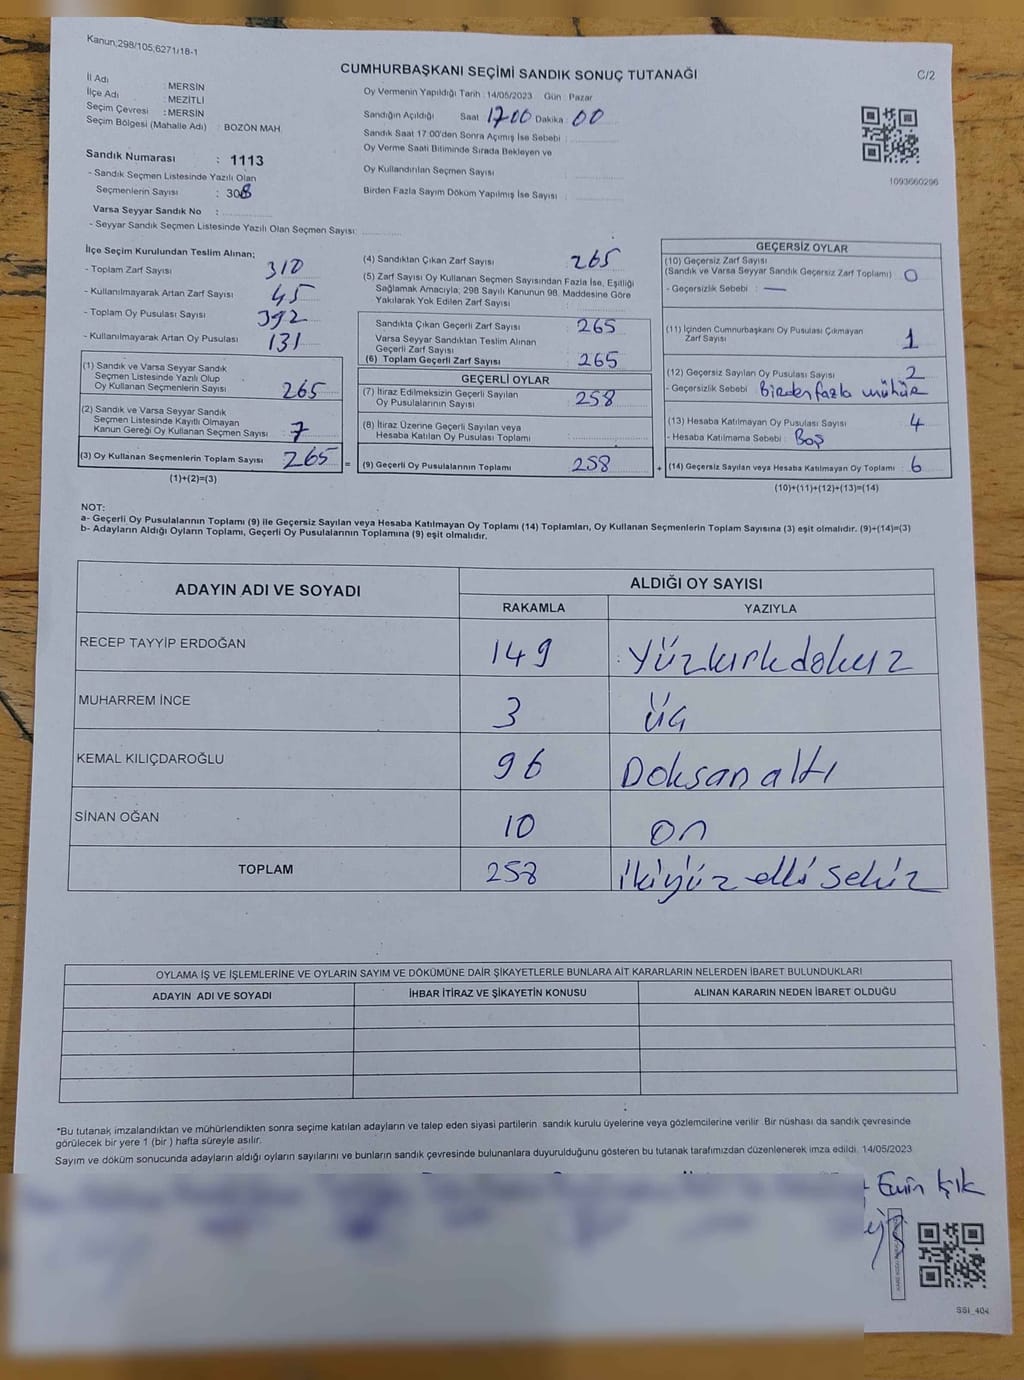 Kanun,298/105,6271/18-1
CUMHURBAŞKANI SEÇİMİ SANDIK SONUÇ TUTANAĞI
C/2
İl Adı : MERSİN
İlçe Adı : MEZİTLİ
Seçim Çevresi : MERSİN
Seçim Bölgesi (Mahalle Adı) : BOZÖN MAH.
Sandık Numarası : 1113
- Sandık Seçmen Listesinde Yazılı Olan
Seçmenlerin Sayısı : 308
Varsa Seyyar Sandık No :
- Seyyar Sandık Seçmen Listesinde Yazılı Olan Seçmen Sayısı:
Oy Vermenin Yapıldığı Tarih : 14/05/2023 Gün : Pazar
Sandığın Açıldığı Saat 1700 Dakika 00
Sandık Saat 17:00'den Sonra Açılmış İse Sebebi :
Oy Verme Saati Bitiminde Sırada Bekleyen ve
Oy Kullandırılan Seçmen Sayısı
Birden Fazla Sayım Döküm Yapılmış İse Sayısı :
1093660296
İlçe Seçim Kurulundan Teslim Alınan;
- Toplam Zarf Sayısı 310
- Kullanılmayarak Artan Zarf Sayısı 45
- Toplam Oy Pusulası Sayısı 392
- Kullanılmayarak Artan Oy Pusulası 131
(1) Sandık ve Varsa Seyyar Sandık
Seçmen Listesinde Yazılı Olup
Oy Kullanan Seçmenlerin Sayısı 265
(2) Sandık ve Varsa Seyyar Sandık
Seçmen Listesinde Kayıtlı Olmayan
Kanun Gereği Oy Kullanan Seçmen Sayısı 7
(3) Oy Kullanan Seçmenlerin Toplam Sayısı 265 =
(1)+(2)=(3)
(4) Sandıktan Çıkan Zarf Sayısı 265
(5) Zarf Sayısı Oy Kullanan Seçmen Sayısından Fazla İse, Eşitliği
Sağlamak Amacıyla; 298 Sayılı Kanunun 98. Maddesine Göre
Yakılarak Yok Edilen Zarf Sayısı
Sandıkta Çıkan Geçerli Zarf Sayısı : 265
Varsa Seyyar Sandıktan Teslim Alınan
Geçerli Zarf Sayısı
(6) Toplam Geçerli Zarf Sayısı : 265
GEÇERLİ OYLAR
(7) İtiraz Edilmeksizin Geçerli Sayılan
Oy Pusulalarının Sayısı : 258
(8) İtiraz Üzerine Geçerli Sayılan veya
Hesaba Katılan Oy Pusulası Toplamı
(9) Geçerli Oy Pusulalarının Toplamı 258 +
GEÇERSİZ OYLAR
(10) Geçersiz Zarf Sayısı
(Sandık ve Varsa Seyyar Sandık Geçersiz Zarf Toplamı) : 0
- Geçersizlik Sebebi : —
(11) İçinden Cumhurbaşkanı Oy Pusulası Çıkmayan
Zarf Sayısı 1
(12) Geçersiz Sayılan Oy Pusulası Sayısı : 2
- Geçersizlik Sebebi Birden fazla mühür
(13) Hesaba Katılmayan Oy Pusulası Sayısı : 4
- Hesaba Katılmama Sebebi : Boş
(14) Geçersiz Sayılan veya Hesaba Katılmayan Oy Toplamı : 6
(10)+(11)+(12)+(13)=(14)
NOT:
a- Geçerli Oy Pusulalarının Toplamı (9) ile Geçersiz Sayılan veya Hesaba Katılmayan Oy Toplamı (14) Toplamları, Oy Kullanan Seçmenlerin Toplam Sayısına (3) eşit olmalıdır. (9)+(14)=(3)
b- Adayların Aldığı Oyların Toplamı, Geçerli Oy Pusulalarının Toplamına (9) eşit olmalıdır.
ADAYIN ADI VE SOYADI
ALDIĞI OY SAYISI
RAKAMLA YAZIYLA
RECEP TAYYİP ERDOĞAN 149 yüzkırkdokuz
MUHARREM İNCE 3 üç
KEMAL KILIÇDAROĞLU 96 Doksan altı
SİNAN OĞAN 10 on
TOPLAM 258 ikiyüz elli sekiz
OYLAMA İŞ VE İŞLEMLERİNE VE OYLARIN SAYIM VE DÖKÜMÜNE DAİR ŞİKAYETLERLE BUNLARA AİT KARARLARIN NELERDEN İBARET BULUNDUKLARI
ADAYIN ADI VE SOYADI İHBAR İTİRAZ VE ŞİKAYETİN KONUSU ALINAN KARARIN NEDEN İBARET OLDUĞU
*Bu tutanak imzalandıktan ve mühürlendikten sonra seçime katılan adayların ve talep eden siyasi partilerin sandık kurulu üyelerine veya gözlemcilerine verilir. Bir nüshası da sandık çevresinde
görülecek bir yere 1 (bir ) hafta süreyle asılır.
Sayım ve döküm sonucunda adayların aldığı oyların sayılarını ve bunların sandık çevresinde bulunanlara duyurulduğunu gösteren bu tutanak tarafımızdan düzenlenerek imza edildi. 14/05/2023
Emin Işık
SSI_404